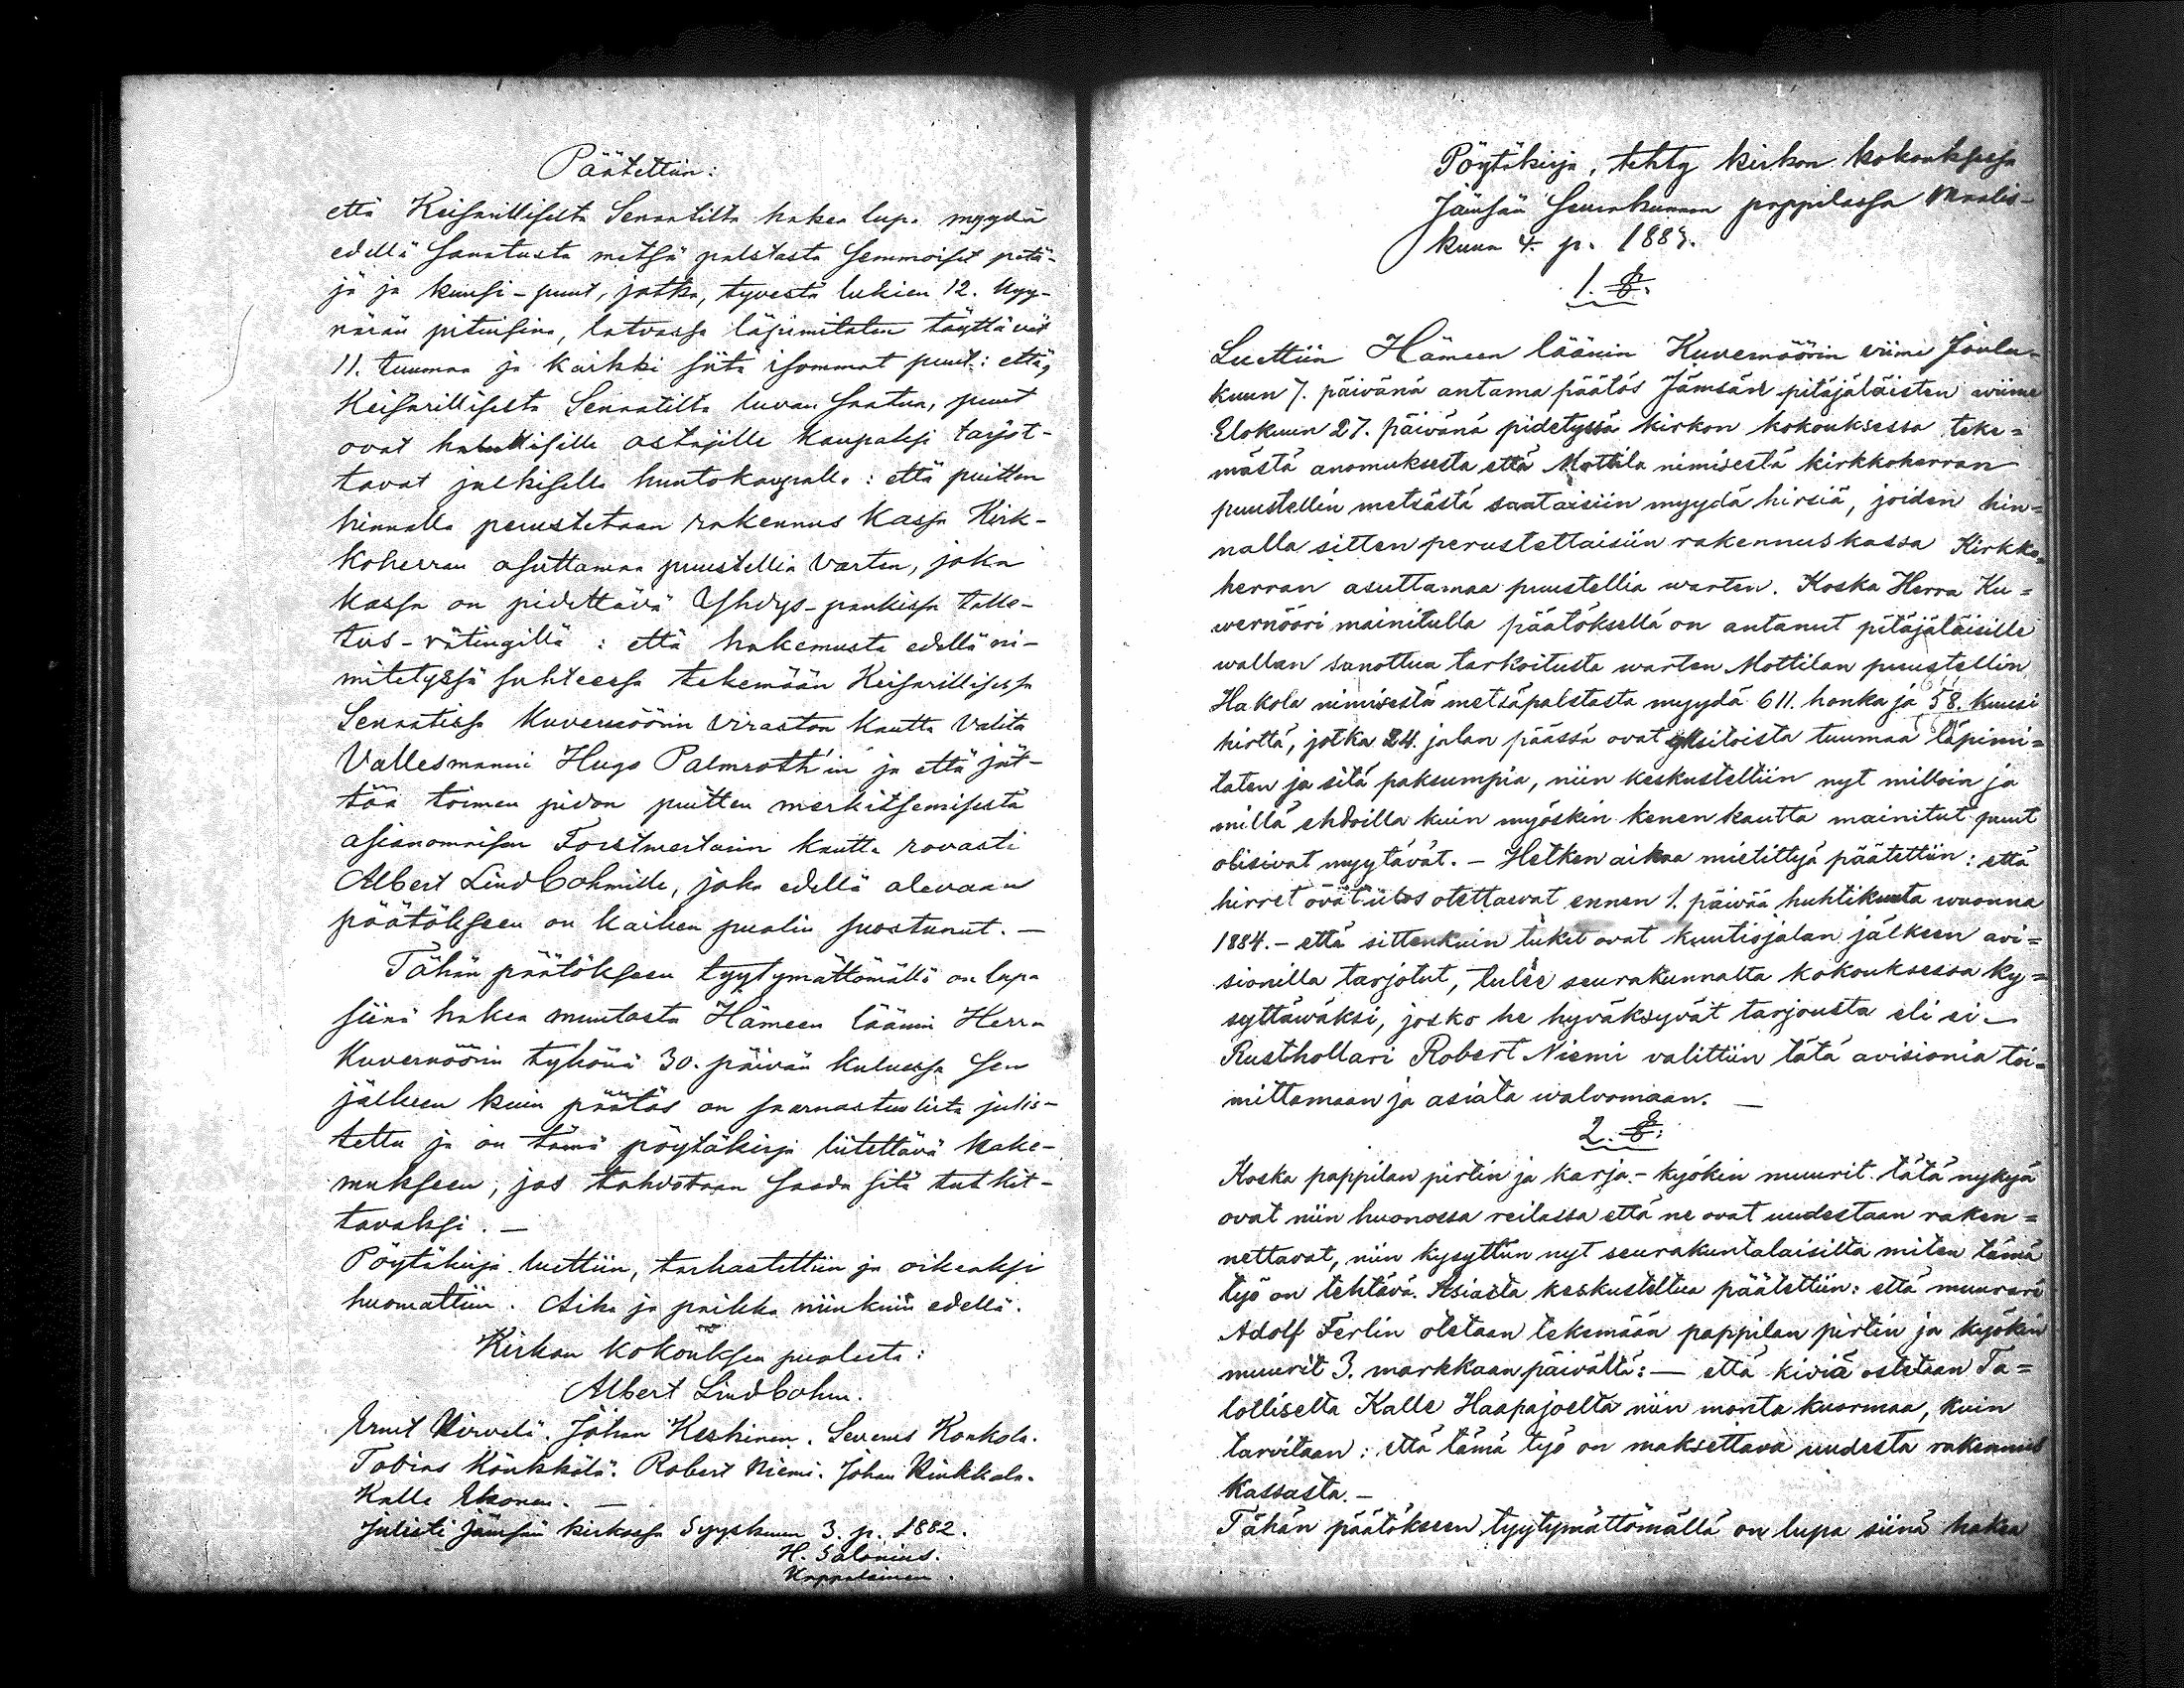 Päätettiin:
että Keisarilliselta Senaatilta hakea lupa myydä
edellä sanatusta metsä palstasta semmoiset petä-
jä ja kuusi-puut, jotka, tyvestä lukien 12. kyy-
närän pituisina, latvassa läpimitaten täyttävät
11. tuumaa ja kaikki siitä isommat puut: että,
Keisarilliselta Senaatilta luvan saatua, puut
ovat halullisille ostajille kaupaksi tarjot-
tavat julkisella huutokaupalla: että puitten
hinnalla perustetaan rakennus kassa Kirk-
koherran asuttamaa puustellia varten, joka
kassa on pidettävä Yhdys-pankissa talle-
tus-rätingillä: että hakemusta edellä ni-
mitetyssä suhteessa tekemään Keisarillisessa
Senaatissa Kuvernöörin Viraston kautta valita
Vallesmanni Hugo Palmroth'in ja että jät-
tää toimen pidon puitten merkitsemisestä
asianomaisen Forstmestarin kautta rovasti
Albert Lindbohmille, joka edellä olevaan
päätökseen on kaiken puolin suostunut. —
Tähän päätökseen tyytymättömällä on lupa
siinä hakea muutosta Hämeen läänin Herra
Kuvernöörin tykönä 30. päivän kuluessa sen
jälkeen kuin päätös on saarnastuolista julis-
tettu ja on tämä pöytäkirja liitettävä hake-
mukseen, jos tahdotaan saada sitä tutkit-
tavaksi. —
Pöytäkirja luettiin, tarkastettiin ja oikeaksi
huomattiin. Aika ja paikka niinkuin edellä.
Kirkon kokouksen puolesta:
Albert Lindbohm.
Johan Keskinen. Severus Konkola.
Tobias Könkkölä. Robert Niemi. Johan
Kalle Ekonen. —
Julisti Jämsän kirkossa Syyskuun 3. p. 1882.
H. Salonius.
Kappalainen.
Pöytäkirja, tehty kirkon kokouksessa
Jämsän seurakunnan pappilassa Maalis-
kuun 4. p. 1883.
1. §.
Luettiin Hämeen läänin Kuvernöörin viime Joulu-
kuun 7. päivänä antama päätös Jämsän pitäjäläisten wiime
Elokuun 27. päivänä pidetyssä kirkon kokouksessa teke=
mästä anomuksesta että Mottila nimisestä kirkkoherran
puustellin metsästä saataisiin myydä hirsiä, joiden hin=
nalla sitten perustettaisiin rakennuskassa Kirkko=
herran asuttamaa puustellia warten. Koska Herra Ku=
wernööri mainitulla päätöksellä on antanut pitäjäläisille
wallan sanottua tarkoitusta warten Mottilan puustellin
Hakola nimisestä metsäpalstasta myydä 611. honka ja 58. kuusi
hirttä, jotka 24. jalan päässä ovat yksitoista tuumaa läpimi=
taten ja sitä paksumpia, niin keskusteltiin nyt milloin ja
millä ehdoilla kuin myöskin kenen kautta mainitut puut
olisivat myytävät. — Hetken aikaa mietittyä päätettiin: että
hirret ovat ulos otettawat ennen 1. päivää huhtikuuta wuonna
1884. — että sittenkuin tukit ovat kuutiojalan jälkeen avi=
sionilla tarjotut, tulee seurakunnalta kokouksessa ky=
syttäwäksi, josko he hyväksyvät tarjousta eli ei. —
Rusthollari Robert Niemi valittiin tätä avisionia toi=
mittamaan ja asiata walvomaan. —
2. §:
Koska pappilan pirtin ja karja-kyökin muurit tätä nykyä
ovat niin huonossa reilassa että ne ovat uudestaan raken=
nettavat, niin kysyttiin nyt seurakuntalaisilta miten tämä
työ on tehtävä. Asiasta keskusteltua päätettiin: että muurari
Adolf Ferlin otetaan tekemään pappilan pirtin ja kyökin
muurit 3. markkaan päivältä: — että kiviä ostetaan Ta=
lolliselta Kalle Haapajoelta niin monta kuormaa, kuin
tarvitaan: että tämä työ on maksettava uudesta rakennus
kassasta. —
Tähän päätökseen tyytymättömällä on lupa siinä hakea